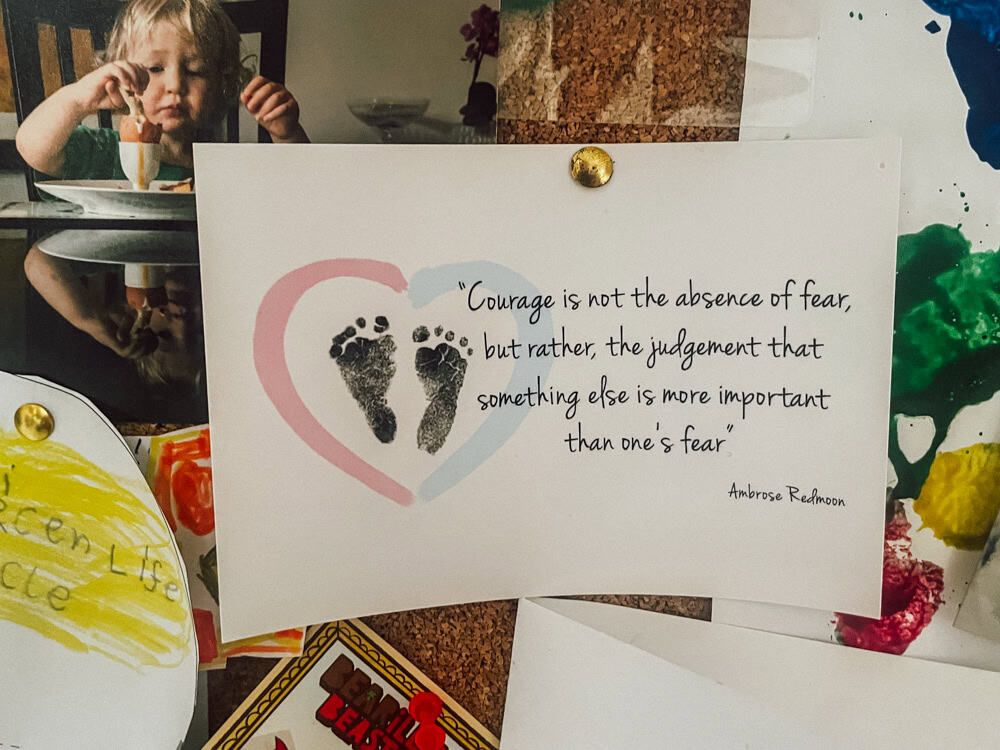 "Courage is not the absence of fear,
but rather, the judgement that
something else is more important
than one's fear"
Ambrose Redmoon
Life